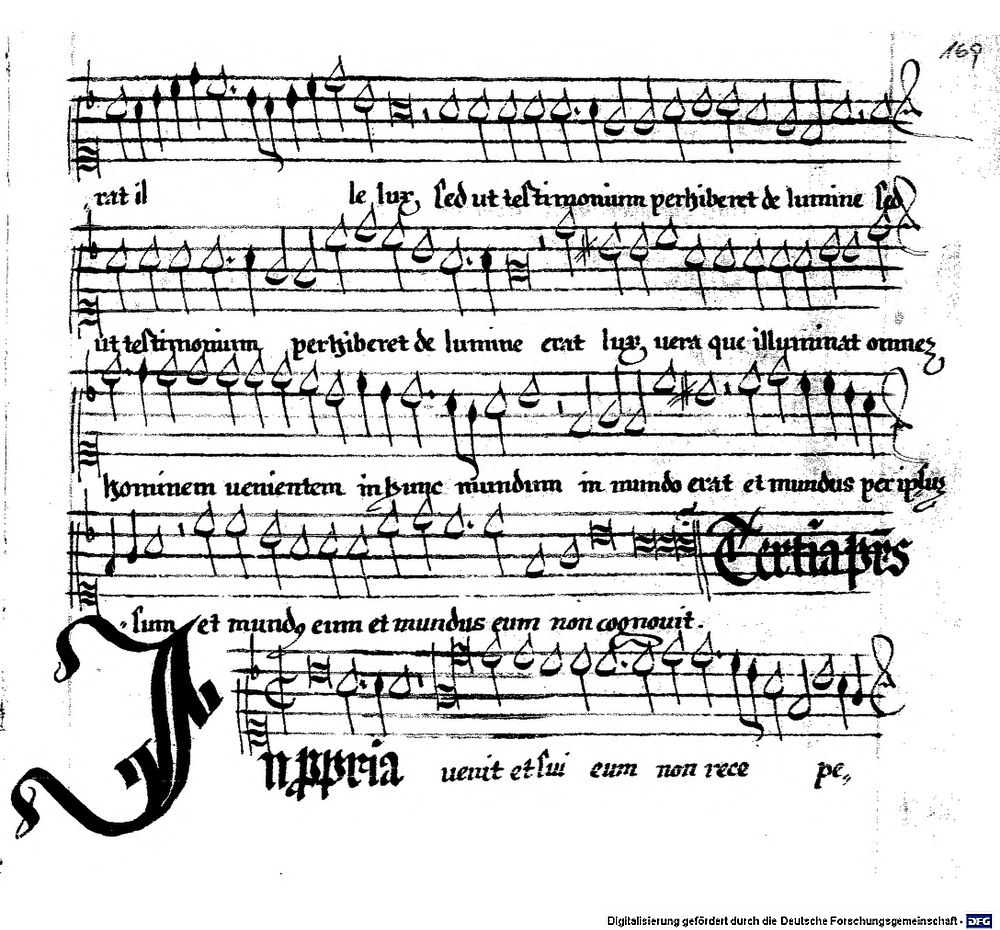 169
rat il le lux, sed ut testimonium perhiberet de lumine sed
ut testimonium perhiberet de lumine erat lux vera que illuminat omnez
hominem uenientem in hunc mundum in mundo erat et mundus per ipsuz
sum et mundo eum et mundus eum non cognouit.
Tertia p̄rs
In ppria uenit et sui eum non rece pe
Digitalisierung gefördert durch die Deutsche Forschungsgemeinschaft - DFG